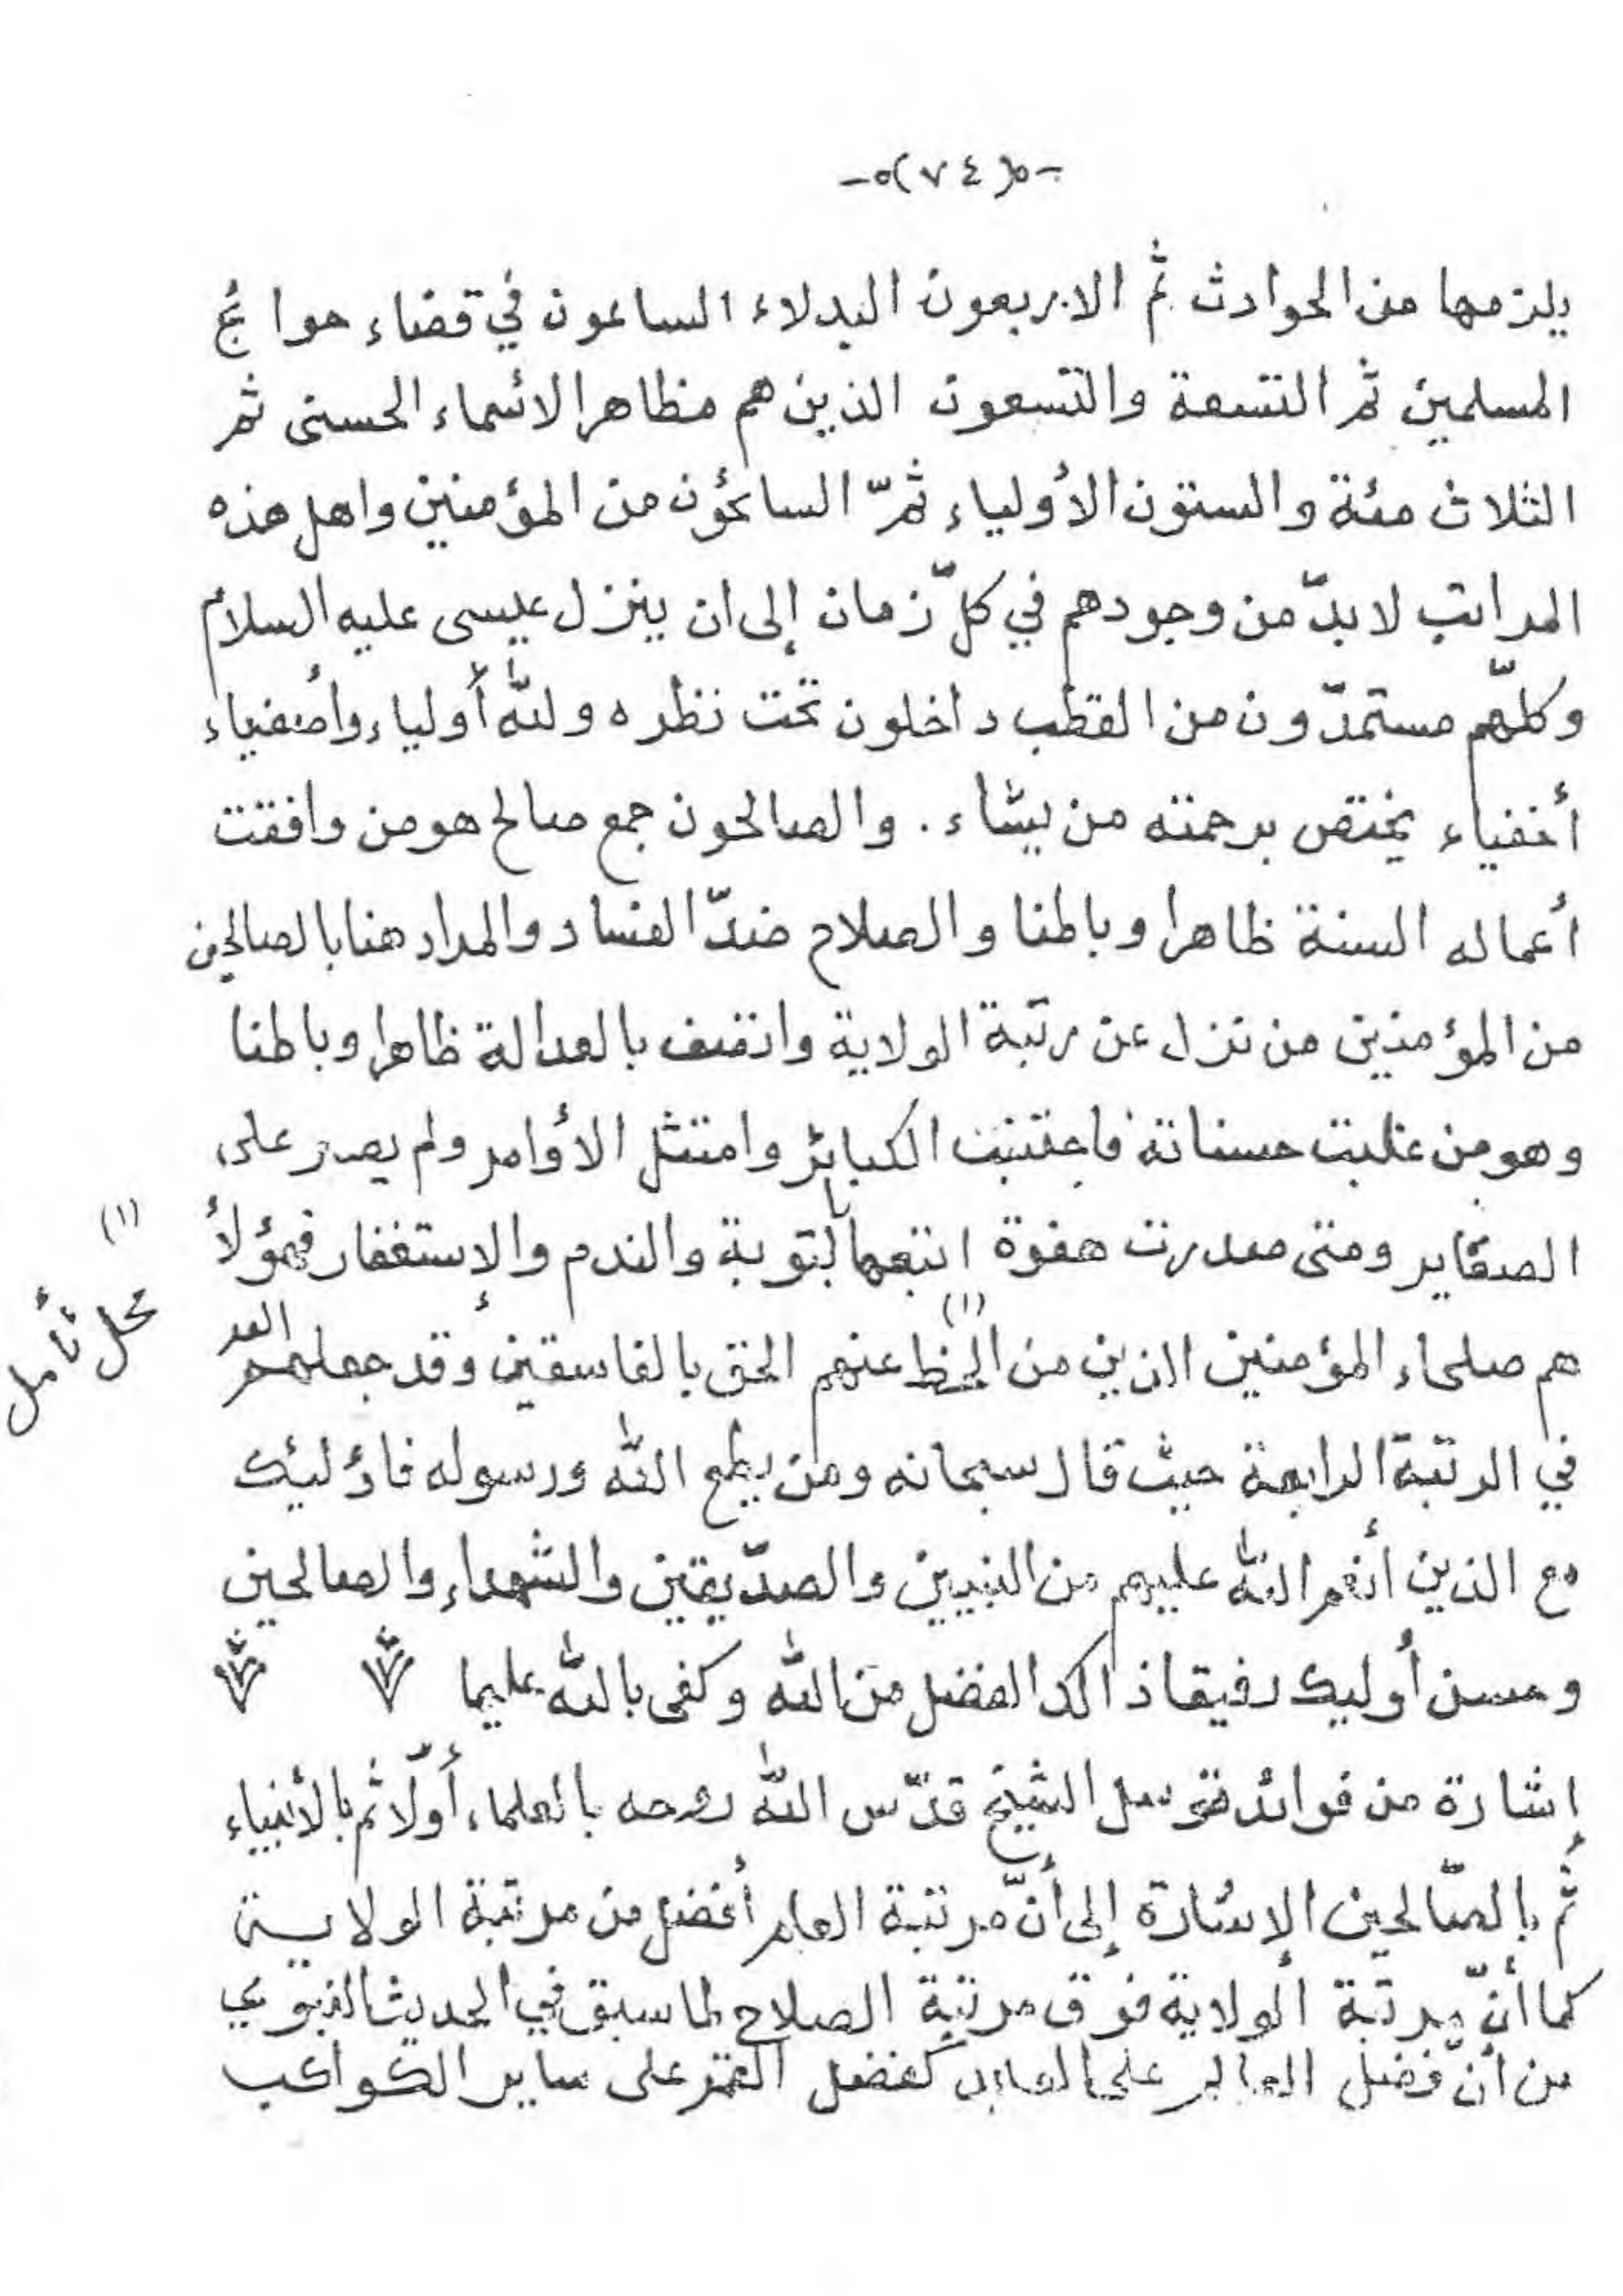 -٥(٧٤)٥-
يلزمها من الحوادث ثم الاربعون البدلاء الساعون في قضاء حوائج
المسلمين ثم التسعة والتسعون الذين هم مظاهر الأسماء الحسنى ثم
الثلاث مئة والستون الأولياء ثمّ السائحون من المؤمنين واهل هذه
المراتب لا بدّ من وجودهم في كلّ زمان إلى ان ينزل عيسى عليه السلام
وكلّهم مستمدّون من القطب داخلون تحت نظره ولله أولياء وأصفياء
أخفياء يختص برحمته من يشاء . والصالحون جمع صالح هو من وافقت
أعماله السنة ظاهرا وباطنا والصلاح ضدّ الفساد والمراد هنا بالصالحين
من المؤمنين من نزل عن رتبة الولاية واتصف بالعدالة ظاهرا وباطنا
وهو من غلبت حسناته فاجتنبت الكبائر وامتثل الأوامر ولم يصر على
الصغاير ومتى صدرت هفوة اتبعها بالتوبة والندم والإستغفار فهؤلأ
(١)
هم صلحاء المؤمنين الذين من انحط (١) عنهم الحق بالفاسقين وقد جعلهم
محل تأمل
في الرتبة الرابعة حيث قال سبحانه ومن يطع الله ورسوله فاؤليك
مع الذين أنعم الله عليهم من النبيين والصدّيقين والشهداء والصالحين
وحسن أوليك رفيقا ذالك الفضل من الله وكفى بالله عليما
إشارة من فوائد توسل الشيخ قدّس الله روحه بالعلماء أولّا ثم بالأنبياء
ثُم بالصّالحين الإشارة إلى أنّ مرتبة العلم أفضل من مرتبة الولاية
كما أنّ مرتبة الولاية فوق مرتبة الصلاح لما سبق في الحديث النبوي
من أنّ فضل العالم على العابد كفضل القمر على ساير الكواكب